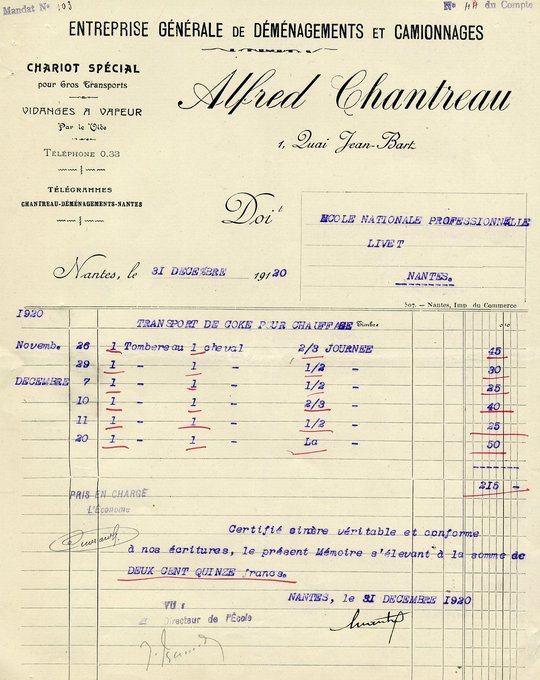 Mandat No 103
No 48 du Compte
ENTREPRISE GÉNÉRALE DE DÉMÉNAGEMENTS ET CAMIONNAGES
CHARIOT SPÉCIAL
pour Gros Transports
VIDANGES A VAPEUR
Par le Vide
TÉLÉPHONE 0.33
TÉLÉGRAMMES
CHANTREAU-DÉMÉNAGEMENTS-NANTES
Alfred Chantreau
1, Quai Jean-Bart
Doit
ECOLE NATIONALE PROFESSIONNELLE
LIVET
NANTES.
Nantes, le 31 DECEMBRE 19120
507. — Nantes, Imp du Commerce
1920
TRANSPORT DE COKE POUR CHAUFFAGE Timbre
Novemb. 26 1 Tombereau 1 cheval 2/3 JOURNEE 45
29 1 - 1 - 1/2 - 30
DECEMBRE 7 1 - 1 - 1/2 - 25
10 1 - 1 - 2/3 - 40
11 1 - 1 - 1/2 - 25
20 1 - 1 - La - 50
-------
215 -
PRIS EN CHARGE
L'Économe
Certifié sinère véritable et conforme
à nos écritures, le présent Mémoire s'élevant à la somme de
DEUX CENT QUINZE francs.
NANTES, le 31 DECEMBRE 1920
VU:
Directeur de l'École